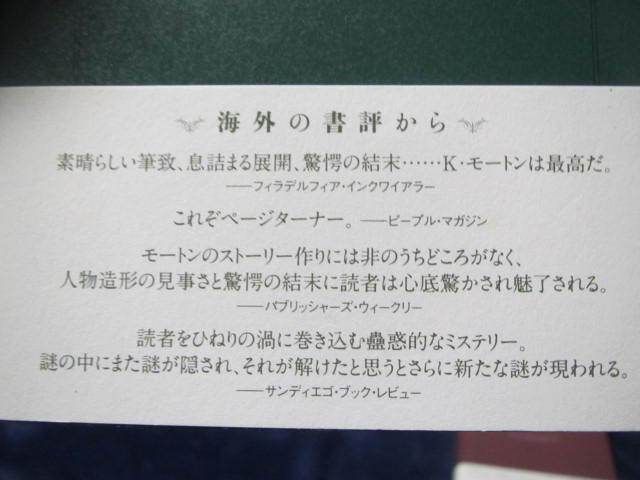 海外の書評から
素晴らしい筆致、息詰まる展開、驚愕の結末……K・モートンは最高だ。
――フィラデルフィア・インクワイアラー
これぞページターナー。――ピープル・マガジン
モートンのストーリー作りには非のうちどころがなく、
人物造形の見事さと驚愕の結末に読者は心底驚かされ魅了される。
――パブリッシャーズ・ウィークリー
読者をひねりの渦に巻き込む蠱惑的なミステリー。
謎の中にまた謎が隠され、それが解けたと思うとさらに新たな謎が現われる。
――サンディエゴ・ブック・レビュー